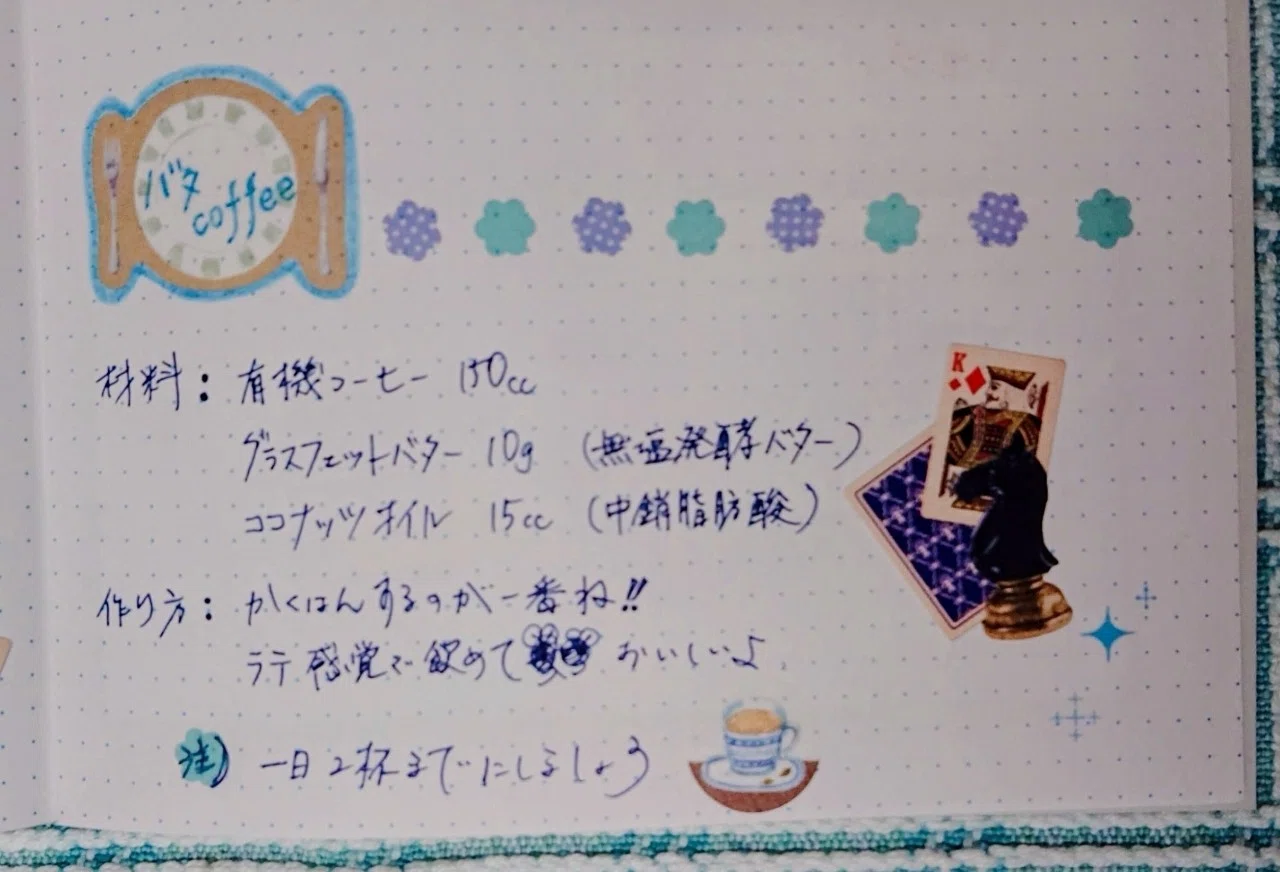 バタ
coffee
材料：有機コーヒー 150cc
グラスフェットバター 10g （無塩発酵バター）
ココナッツオイル 15cc （中鎖脂肪酸）
作り方：かくはんするのが一番ね!!
ラテ感覚で飲めて おいしいよ
注) 一日2杯までにしましょう
K